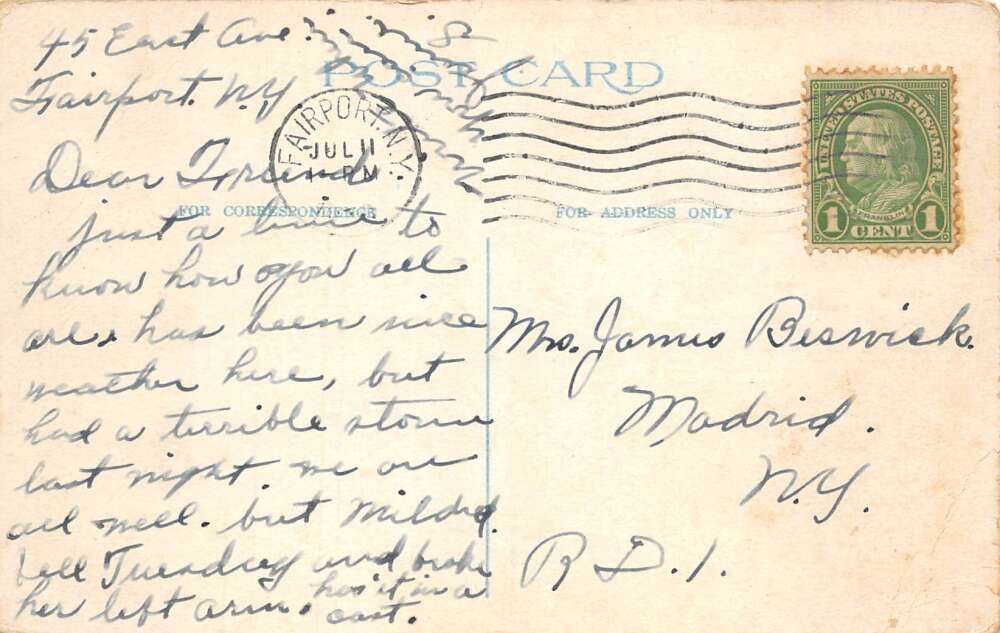 45 East Ave.
Fairport. N.Y
POST CARD
FAIRPORT, N.Y.
JUL 11
PM
UNITED STATES POSTAGE
FRANKLIN
1 CENT 1
FOR CORRESPONDENCE
FOR ADDRESS ONLY
Dear Friend
just a line to
know how you all
are, has been nice
weather here, but
had a terrible storm
last night. we are
all well. but Mildred.
fell Tuesday and broke
her left arm. has it in a
cast.
Mrs. James Beswick.
Madrid.
N.Y.
R.D.1.